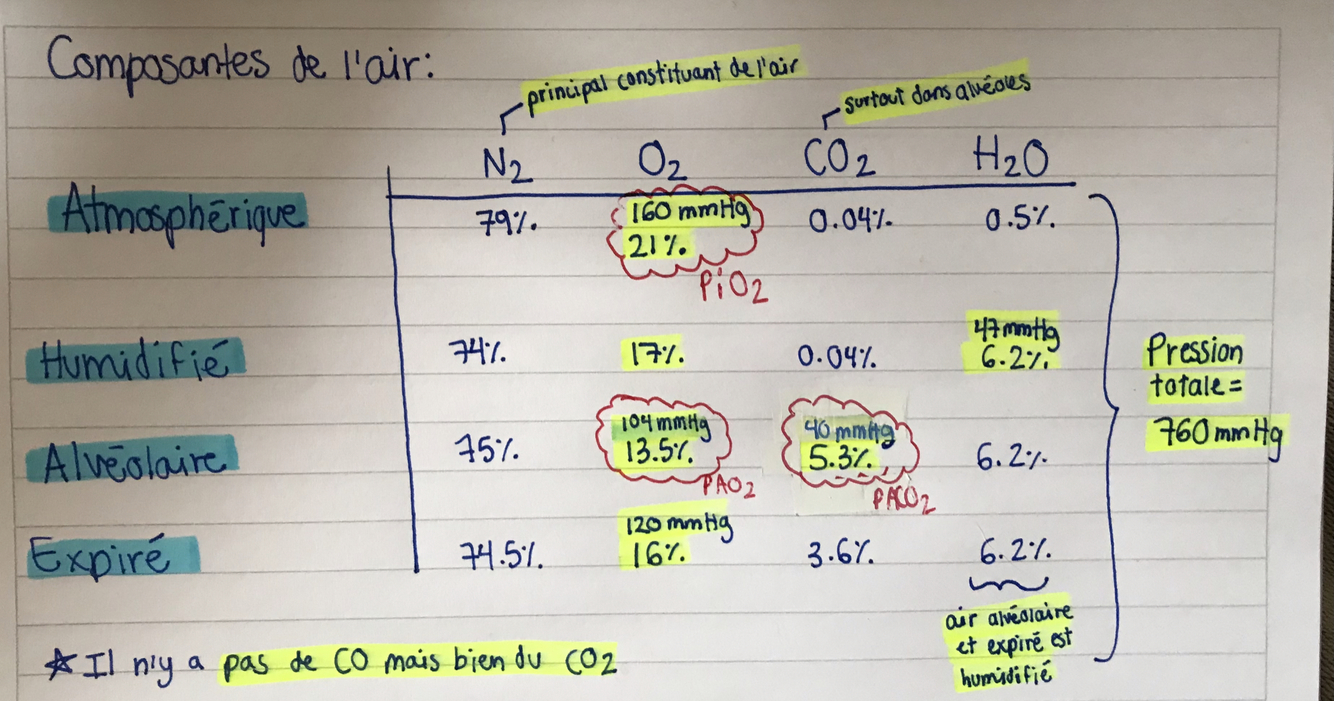 Composantes de l'air:
principal constituant de l'air
surtout dans alvéoles
N2 O2 CO2 H2O
Atmosphérique 79% 160 mmHg 0.04% 0.5%
21%
PiO2
Humidifié 74% 17% 0.04% 47 mmHg
6.2%
Pression
totale =
760 mmHg
Alvéolaire 75% 104 mmHg 40 mmHg 6.2%
13.5% 5.3%
PAO2 PACO2
Expiré 74.5% 120 mmHg 3.6% 6.2%
16%
air alvéolaire
et expiré est
humidifié
☆ Il n'y a pas de CO mais bien du CO2